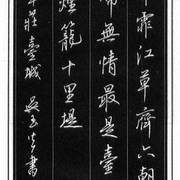 霏江草齊六朝
啼無情最是臺
煙籠十里堤
莊臺城
書